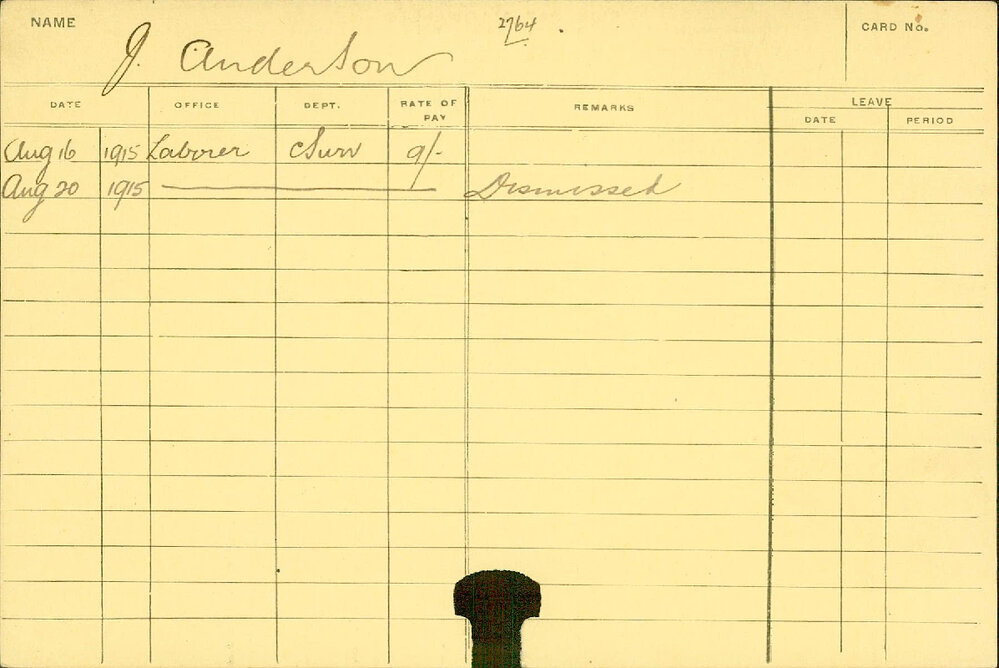 NAME J. Anderson 2764 CARD No.
DATE OFFICE DEPT. RATE OF PAY REMARKS LEAVE
DATE PERIOD
Aug 16 1915 Laborer Surv 9/-
Aug 20 1915 Dismissed